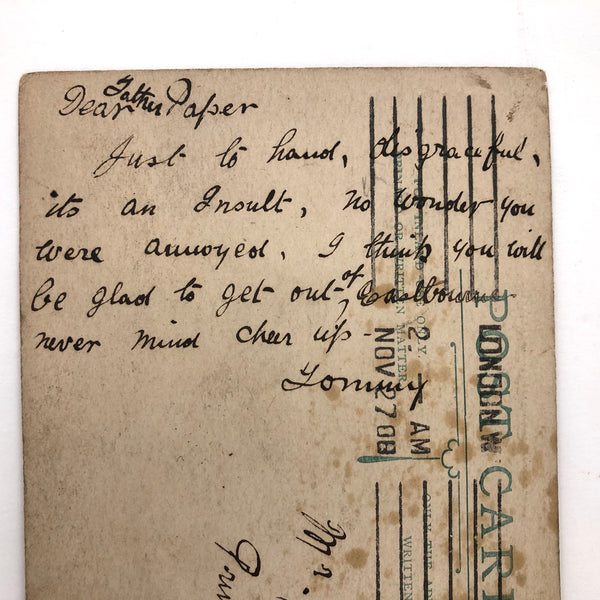 Dear Father Paper
Just to hand, disgraceful,
its an Insult, no wonder you
were annoyed. I think you will
be glad to get out of Eastbourne
never mind cheer up -
Tommy
LONDON.W
2 - AM
NOV 27 08
POST CAR
OR WRITTEN MATTER
ONLY THE
WRITTEN
Mr.